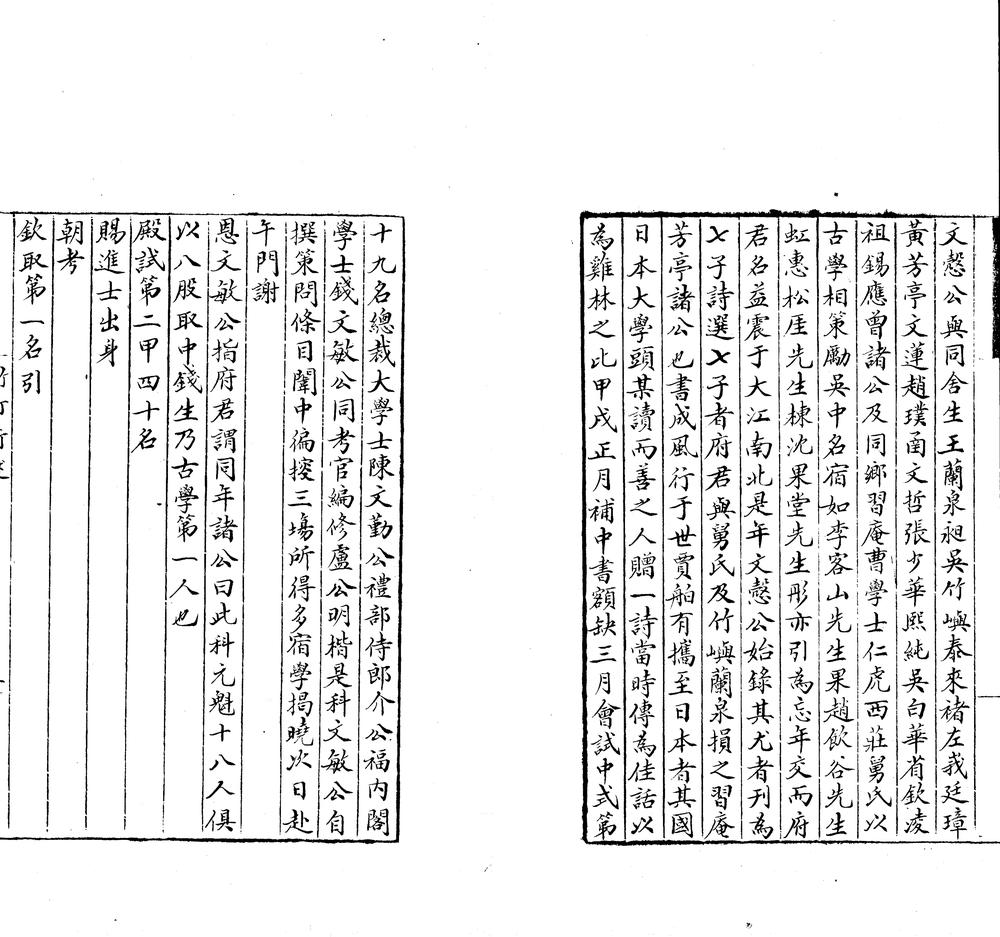 文慤公與同舍生王蘭泉昶吳竹嶼泰來褚左莪廷璋
黃芳亭文蓮趙璞函文哲張少華熙純吳白華省欽凌
祖錫應曾諸公及同鄉習庵曹學士仁虎西莊舅氏以
古學相策勵吳中名宿如李客山先生果趙飲谷先生
虹惠松厓先生棟沈果堂先生彤亦引為忘年交而府
君名益震于大江南北是年文慤公始錄其尤者刊為
七子詩選七子者府君與舅氏及竹嶼蘭泉損之習庵
芳亭諸公也書成風行于世賈舶有攜至日本者其國
日本大學頭某讀而善之人贈一詩當時傳為佳話以
為雞林之比甲戌正月補中書額缺三月會試中式第
十九名總裁大學士陳文勤公禮部侍郎介公福內閣
學士錢文敏公同考官編修盧公明楷是科文敏公自
撰策問條目闈中徧搜三塲所得多宿學揭曉次日赴
午門謝
恩文敏公指府君謂同年諸公曰此科元魁十八人俱
以八股取中錢生乃古學第一人也
殿試第二甲四十名
賜進士出身
朝考
欽取第一名引